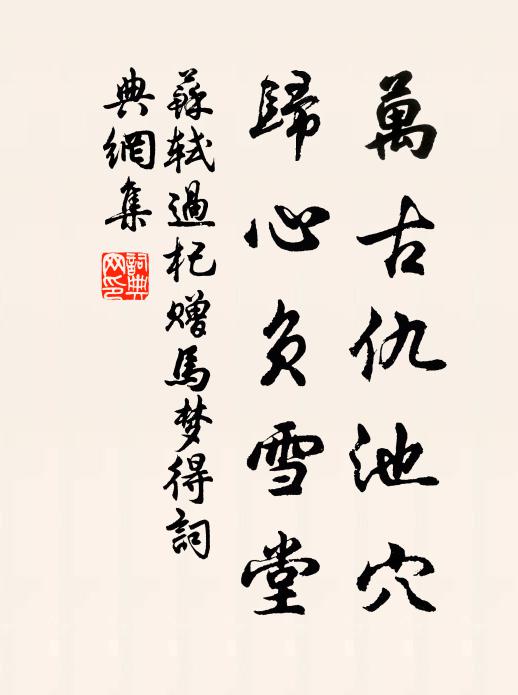 萬古仇池穴
歸心負雪堂
蘇軾過杞贈馬梦得詞
典網集
詞典网印